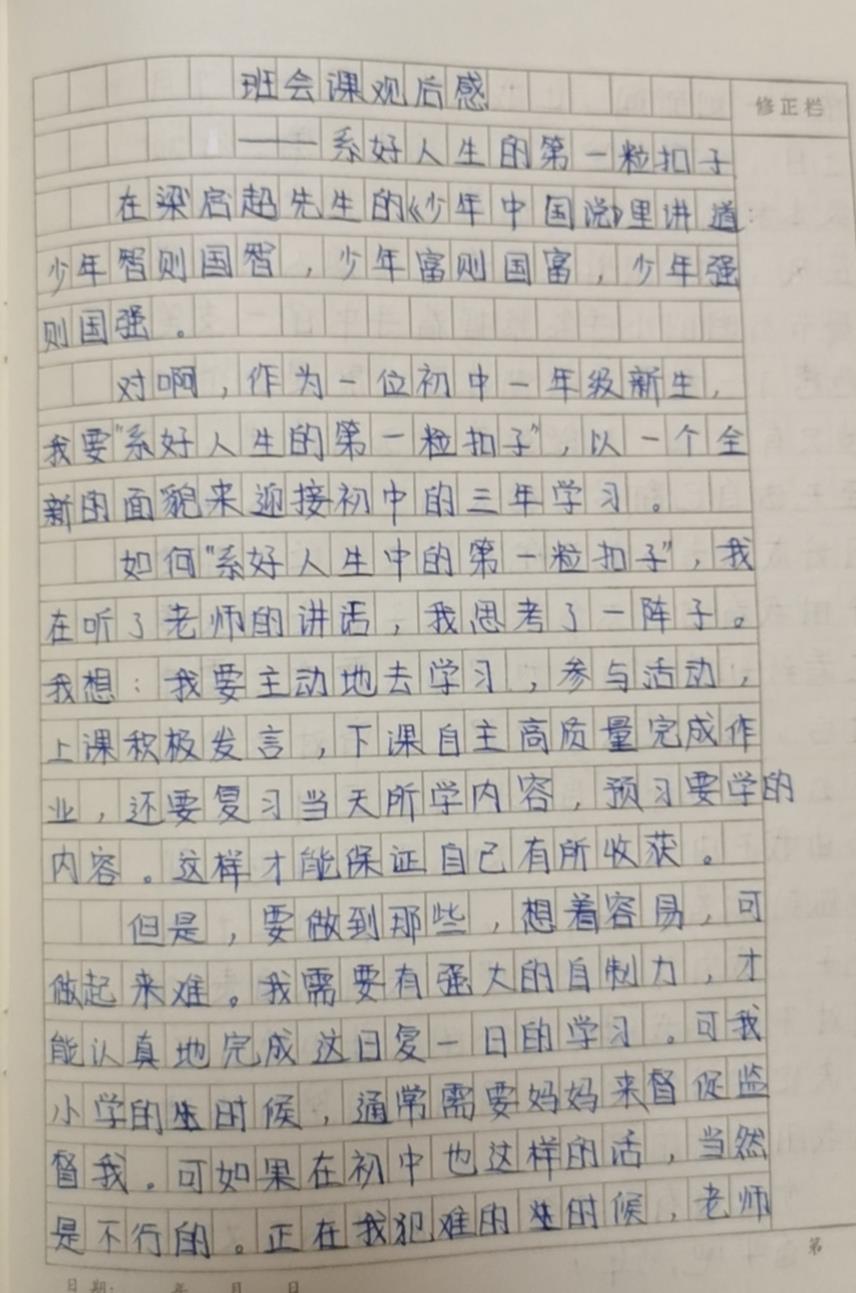 班会课观后感
修正栏
——系好人生的第一粒扣子
在梁启超先生的《少年中国说》里讲道:
少年智则国智,少年富则国富,少年强
则国强。
对啊,作为一位初中一年级新生,
我要"系好人生的第一粒扣子",以一个全
新的面貌来迎接初中的三年学习。
如何"系好人生中的第一粒扣子",我
在听了老师的讲话,我思考了一阵子。
我想:我要主动地去学习,参与活动,
上课积极发言,下课自主高质量完成作
业,还要复习当天所学内容,预习要学的
内容。这样才能保证自己有所收获。
但是,要做到那些,想着容易,可
做起来难。我需要有强大的自制力,才
能认真地完成这日复一日的学习。可我
小学的时候,通常需要妈妈来督促监
督我。可如果在初中也这样的话,当然
是不行的。正在我犯难的时候,老师
第
日期: 年 月 日